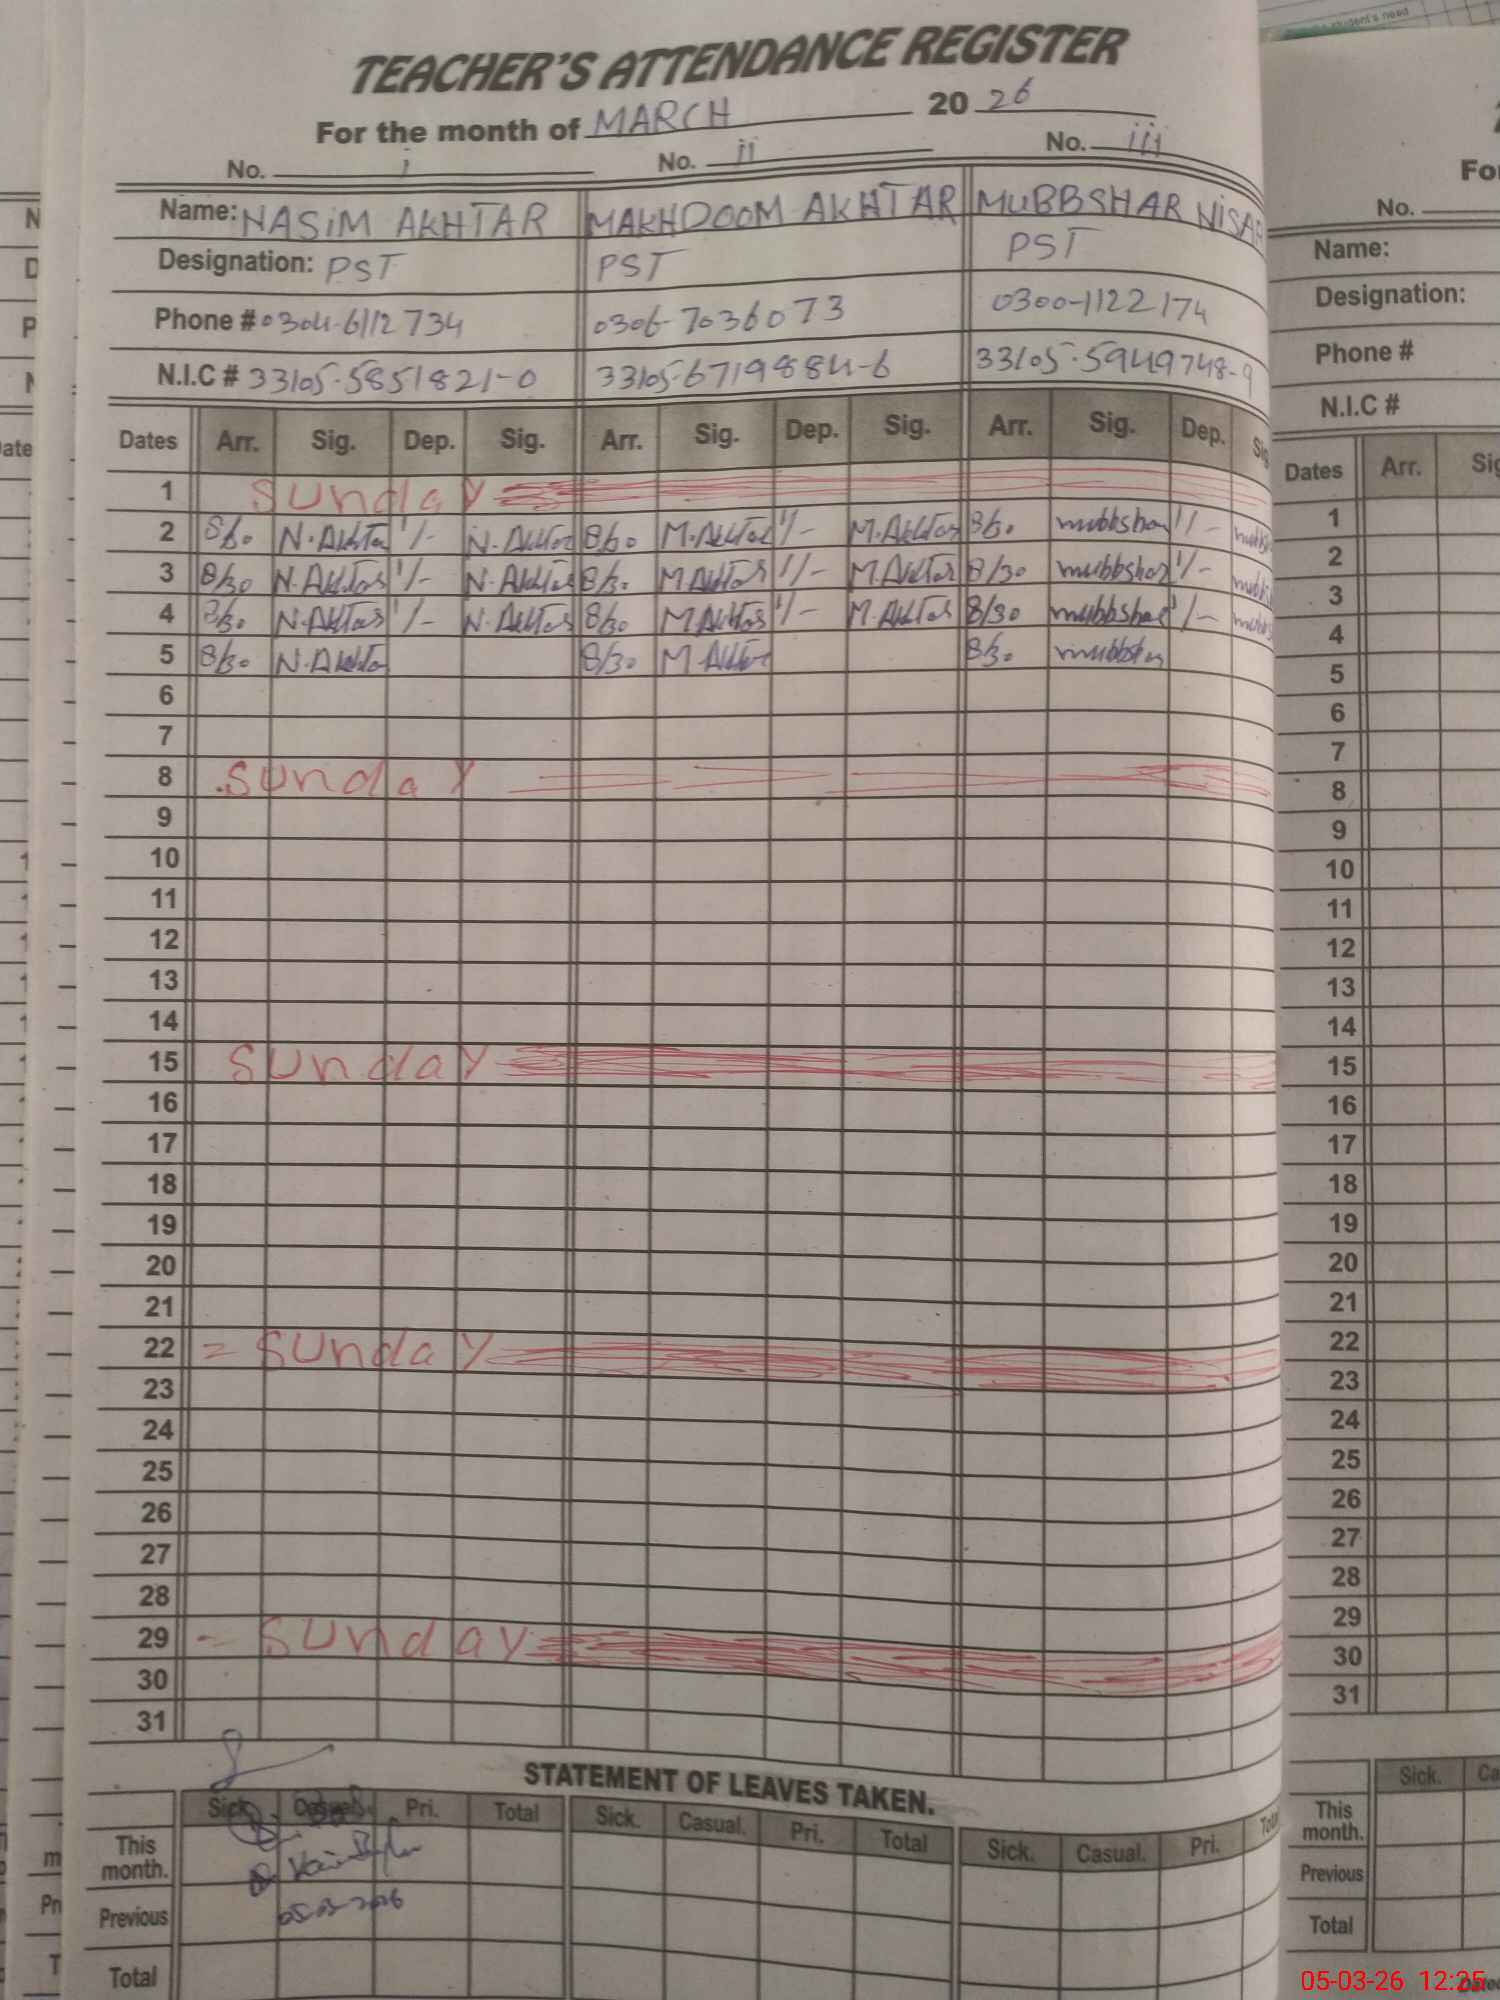 the student's need
TEACHER'S ATTENDANCE REGISTER
For the month of MARCH 20 26
No. i No. ii No. iii
Name: NASIM AKHTAR MAKHDOOM AKHTAR MUBBSHAR NISAR
Designation: PST PST PST
Phone # 0304-6112734 0306-7036073 0300-1122174
N.I.C # 33105-5851821-0 33105-6719884-6 33105-5949748-9
Dates Arr. Sig. Dep. Sig. Arr. Sig. Dep. Sig. Arr. Sig. Dep. Sig
1 Sunday
2 8/30 N.Akhtar 1/- N.Akhtar 8/30 M.Akhtar 1/- M.Akhtar 8/30 mubbshar 1/-
3 8/30 N.Akhtar 1/- N.Akhtar 8/30 M.Akhtar 1/- M.Akhtar 8/30 mubbshar 1/-
4 8/30 N.Akhtar 1/- N.Akhtar 8/30 M.Akhtar 1/- M.Akhtar 8/30 mubbshar 1/-
5 8/30 N.Akhtar 8/30 M.Akhtar 8/30 mubbshar
6
7
8 Sunday
9
10
11
12
13
14
15 Sunday
16
17
18
19
20
21
22 = Sunday
23
24
25
26
27
28
29 - Sunday
30
31
STATEMENT OF LEAVES TAKEN.
Sick. Casual. Pri. Total Sick. Casual. Pri. Total Sick. Casual. Pri. Total
This month.
Previous 05-03-2026
Total
No.
Name:
Designation:
Phone #
N.I.C #
Dates Arr. Sig
1
2
3
4
5
6
7
8
9
10
11
12
13
14
15
16
17
18
19
20
21
22
23
24
25
26
27
28
29
30
31
Sick. Ca
This month.
Previous
Total
05-03-26 12:25